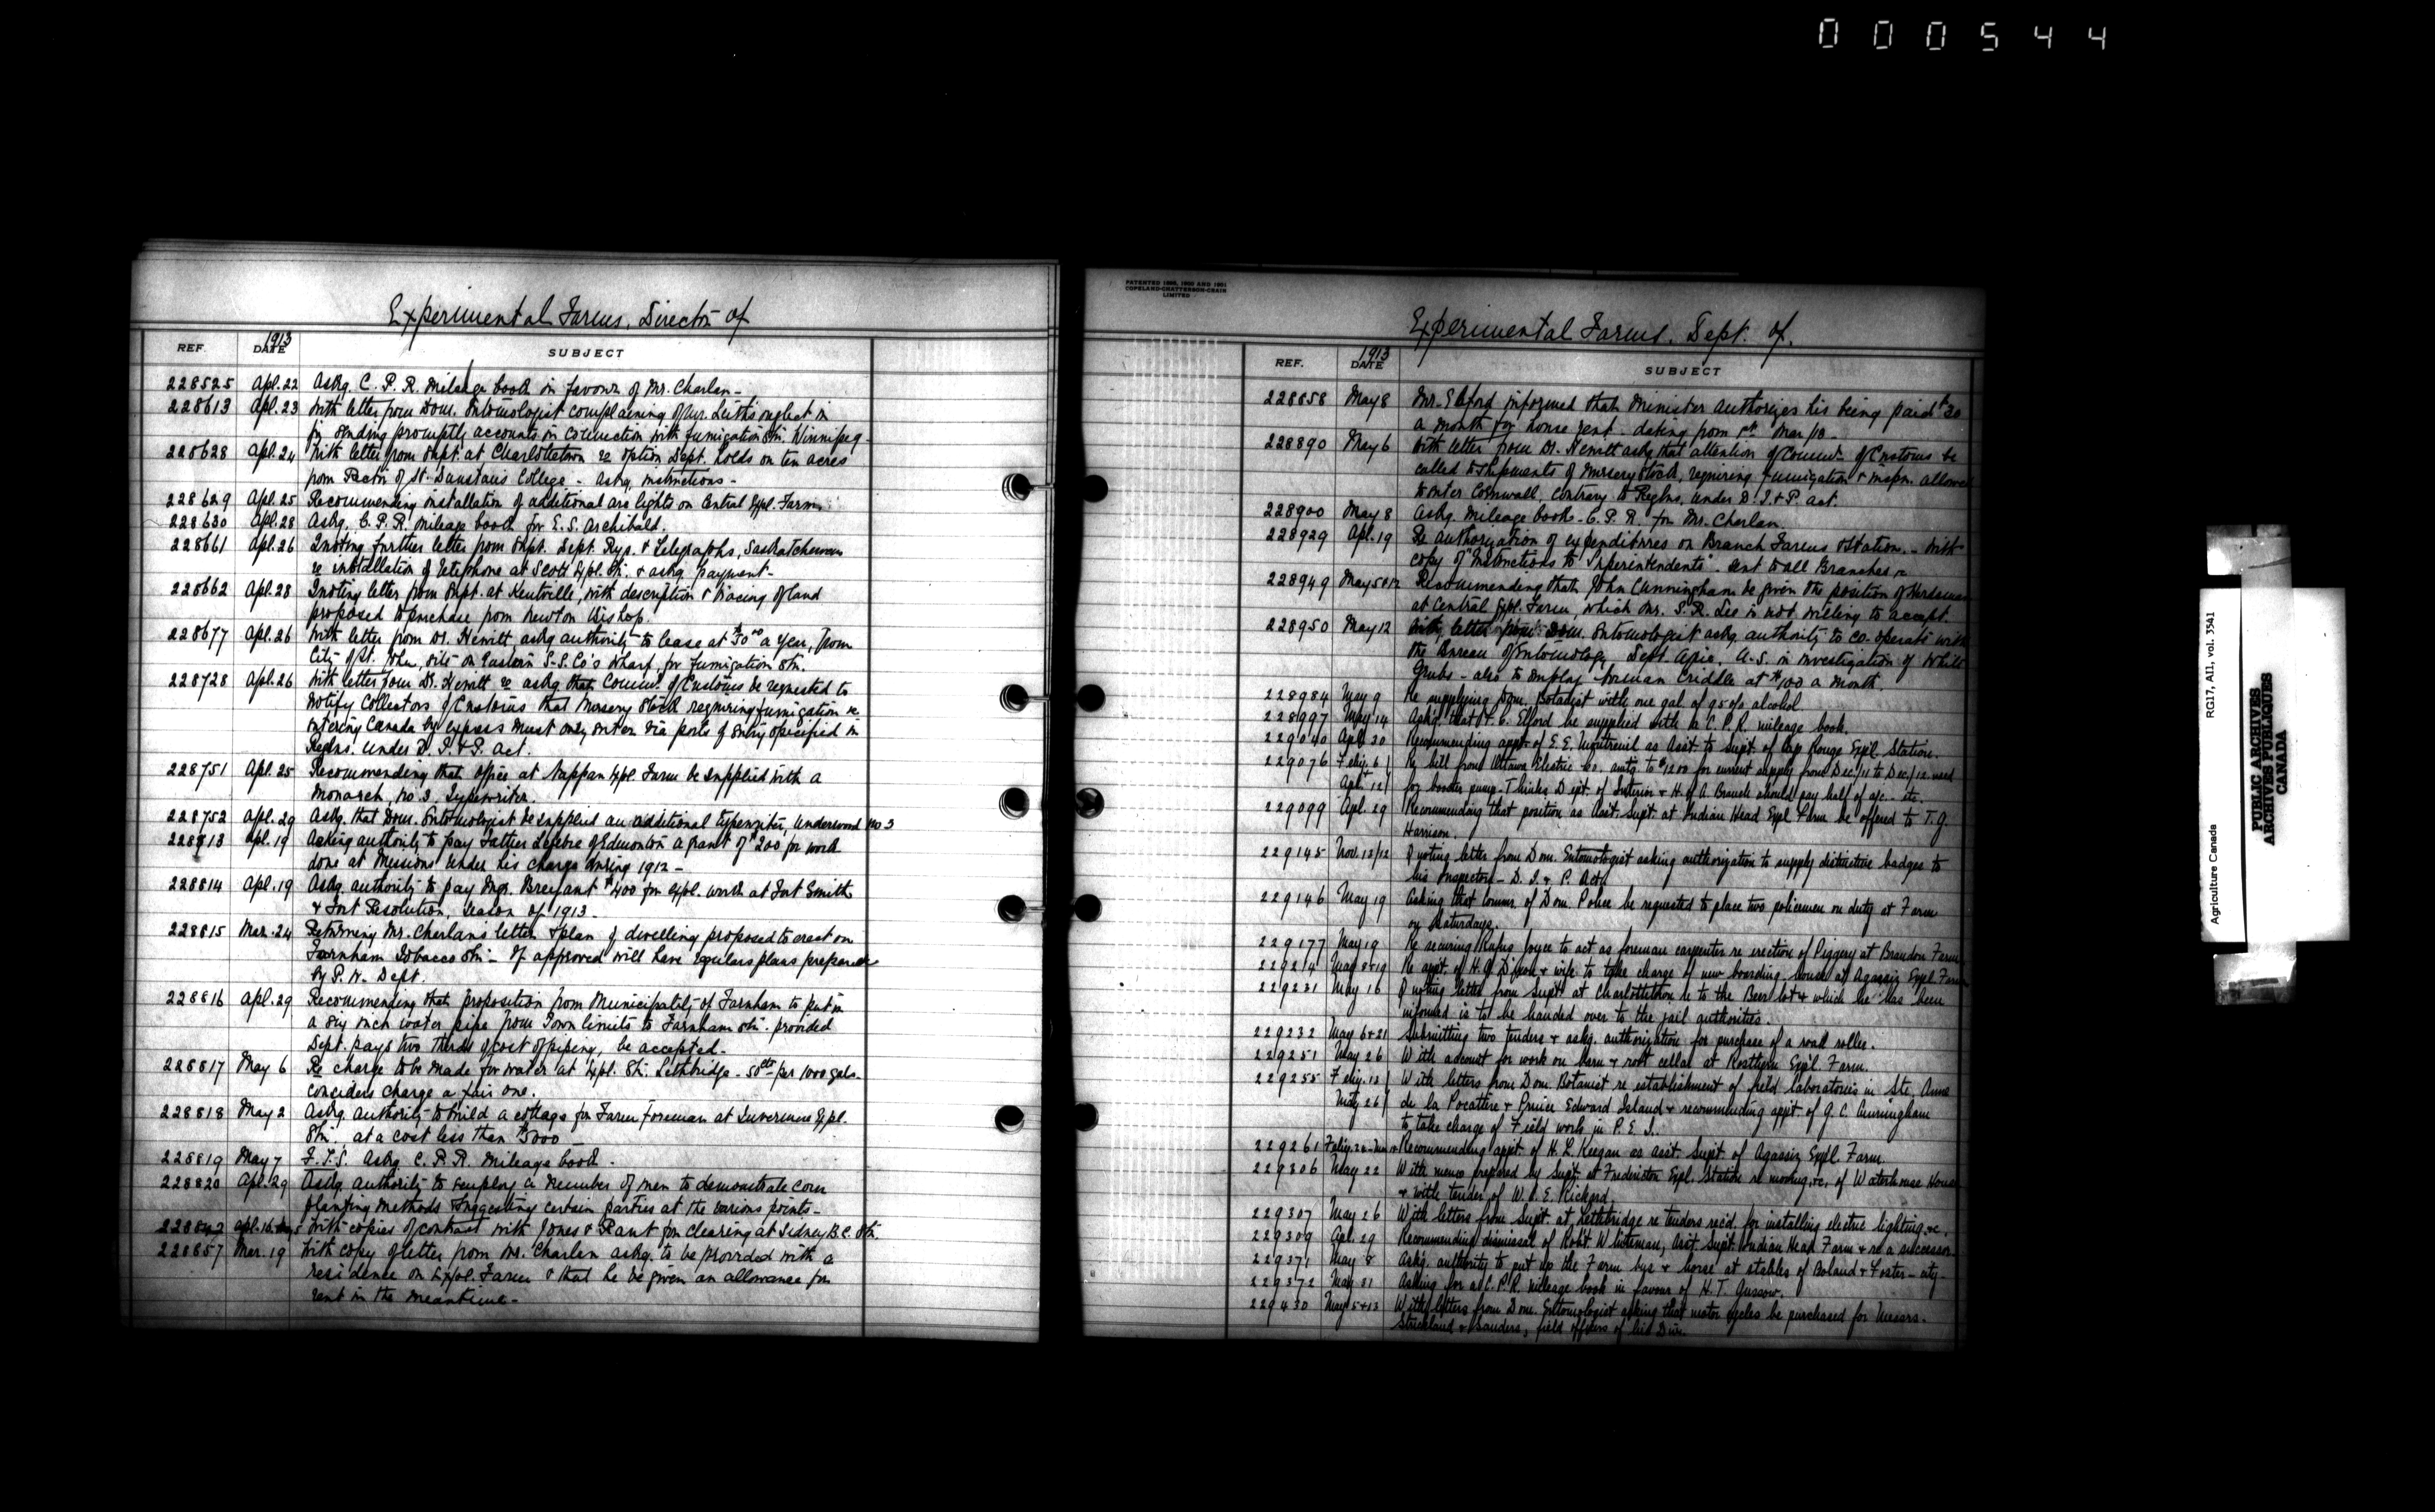 000544
Experimental Farms, Director of
REF. DATE 1913 SUBJECT
228525 Apl. 22 Askg. C. P. R. mileage book in favour of Mr. Charlan -
228613 Apl. 23 With letter from Dom. Entomologist complaining of Mr. Leith's neglect in
in sending promptly accounts in connection with fumigation Stn. Winnipeg -
228628 Apl. 24 With letter from Supt. at Charlottetown re option Dept. holds on ten acres
from Rector of St. Dunstan's College - Askg. instructions -
228629 Apl. 25 Recommending installation of additional arc lights on Central Expl. Farm.
228630 Apl. 28 Askg. C. P. R. mileage book for E. S. Archibald.
228661 Apl. 26 Quoting further letter from Supt. Dept. Rys. & Telegraphs, Saskatchewan
re installation of telephone at Scott Expl. Stn. & askg. payment -
228662 Apl. 28 Quoting letter from Supt. at Kentville, with description & tracing of land
proposed to purchase from Newton Bishop.
228677 Apl. 26 With letter from Dr. Hewitt, askg authority to lease at $50.00 a year, from
City of St. John, site on Eastern S.S. Co's wharf, for fumigation Stn.
228728 Apl. 26 With letter from Dr. Hewitt re askg that Commr. of Customs be requested to
notify Collectors of Customs that nursery stock requiring fumigation re
entering Canada by express must only enter via ports of entry specified in
Reglns. under D. I. & P. Act.
228751 Apl. 25 Recommending that office at Nappan Expl. Farm be supplied with a
Monarch No 3 Typewriter.
228752 Apl. 29 Askg. that Dom. Entomologist be supplied an additional typewriter, Underwood No 3
228813 Apl. 19 Asking authority to pay Father Lefebvre of Edmonton a grant of $200 for work
done at Missions under his charge during 1912 -
228814 Apl. 19 Askg. authority to pay Mgr. Breynant $400 for expl. work at Fort Smith
& Fort Resolution, season of 1913.
228815 Mar. 24 Returning Mr. Charlan's letter & plan of dwelling proposed to erect on
Farnham Tobacco Stn - If approved will have regular plans prepared
by P. W. Dept.
228816 Apl. 29 Recommending that proposition from Municipality of Farnham to put in
a six inch water pipe from Town limits to Farnham Stn. provided
Dept. pays two thirds of cost of piping, be accepted.
228817 May 6 Re charge to be made for water at Expl. Stn. Lethbridge - 50cts per 1000 gals.
considers charge a fair one.
228818 May 2 Askg. authority to build a cottage for Farm Foreman at Invermere Expl.
Stn., at a cost less than $3000 -
228819 May 7 F.T.S. Askg C. P. R. Mileage book -
228820 Apl. 29 Askg authority to employ a number of men to demonstrate corn
planting methods & suggesting certain parties at the various points -
228842 Apl. 16 With copies of contract with Jones & Rant for clearing at Sidney B.C. Stn.
228857 Mar. 19 With copy of letter from Mr. Charlan askg. to be provided with a
residence on Expl. Farm & that he be given an allowance for
rent in the meantime -
PATENTED 1895, 1900 AND 1901
COPELAND-CHATTERSON-CRAIN
LIMITED
Experimental Farms. Dept. of.
REF. DATE 1913 SUBJECT
228858 May 8 Mr. Elford informed that Minister authorizes his being paid $20
a month for house rent - dating from 1st Mar/13 -
228890 May 6 With letter from Dr. Hewitt askg that attention of Commr. of Customs be
called to shipments of nursery stock, requiring fumigation & inspn. allowed
to enter Cornwall, contrary to Reglns. under D. I. & P. Act.
228900 May 8 Askg. mileage book - C. P. R. for Mr. Charlan.
228929 Apl. 19 Re authorization of expenditures on Branch Farms & Station. - With
copy of "Instructions to Superintendents". sent to all Branches
228949 May 5 & 12 Recommending that John Cunningham be given the position of Herdsman
at Central Expl. Farm, which Mr. S. R. Lee is not willing to accept.
228950 May 12 With letter from Dom. Entomologist askg authority to co-operate with
the Bureau of Entomology Dept. Agric. U.S. in investigation of White
Grubs - also to employ Norman Criddle at $100 a month.
228984 May 9 Re supplying Dom. Botanist with one gal of 95% alcohol
228997 May 14 Askg. that F. C. Elford be supplied with a C. P. R. mileage book.
229040 Apl. 30 Recommending appt. of E. E. Montreuil as Asst. to Supt. of Cap Rouge Expl. Station.
229076 Feby. 6 Re bill from Ottawa Electric Co. amtg to $1200 for current supply from Dec./11 to Dec./12 used
Apl. 12 for booster pump - Thinks Dept. of Interior & H. of A. Branch should pay half of a/c - etc.
229099 Apl. 29 Recommending that position as Asst. Supt. at Indian Head Expl Farm be offered to T. J.
Harrison.
229145 Nov. 12/12 Quoting letter from Dom. Entomologist asking authorization to supply distinctive badges to
his Inspectors - D. I. & P. Act.
229146 May 19 Asking that Commr. of Dom. Police be requested to place two policemen on duty at Farm
on Saturdays.
229177 May 19 Re securing Rufus Joyce to act as foreman carpenter re erection of Piggery at Brandon Farm
229214 May 8 & 19 Re appt. of H. J. Dixon & wife to take charge of new boarding house at Agassiz Expl Farm
229231 May 16 Quoting letter from Supt. at Charlottetown re to the Beer lot which he has been
informed is to be handed over to the jail authorities.
229232 May 6 & 21 Submitting two tenders & askg. authorization for purchase of a road roller.
229251 May 26 With account for work on barn & root cellar at Rosthern Exp'l. Farm.
229255 Feby. 13 With letters from Dom. Botanist re establishment of field laboratories in Ste. Anne
May 26 de la Pocatiere & Prince Edward Island & recommending appt. of G. C. Cunningham
to take charge of Field work in P. E. I.
229261 Feby. 20 Recommending appt. of H. L. Keegan as asst. Supt of Agassiz Expl. Farm.
229306 May 22 With memo prepared by Supt. at Fredericton Expl. Station re moving &c. of Waterhouse House
& with tender of W. E. Rickard.
229307 May 26 With letters from Supt. at Lethbridge re tenders recd. for installing electric lighting &c.
229309 Apl. 29 Recommending dismissal of Robt. Whiteman, Asst. Supt. Indian Head Farm & re a successor
229371 May 8 Askg. authority to put up the Farm bus & horse at stables of Boland & Foster - city -
229372 May 31 Asking for a C.P.R. mileage book in favour of H. T. Gussow.
229430 May 5 & 13 With letters from Dom. Entomologist asking that motor cycles be purchased for Messrs.
Strickland & Sanders, field officers of his Div.
Agriculture Canada RG17, AII, vol. 3541
PUBLIC ARCHIVES
ARCHIVES PUBLIQUES
CANADA